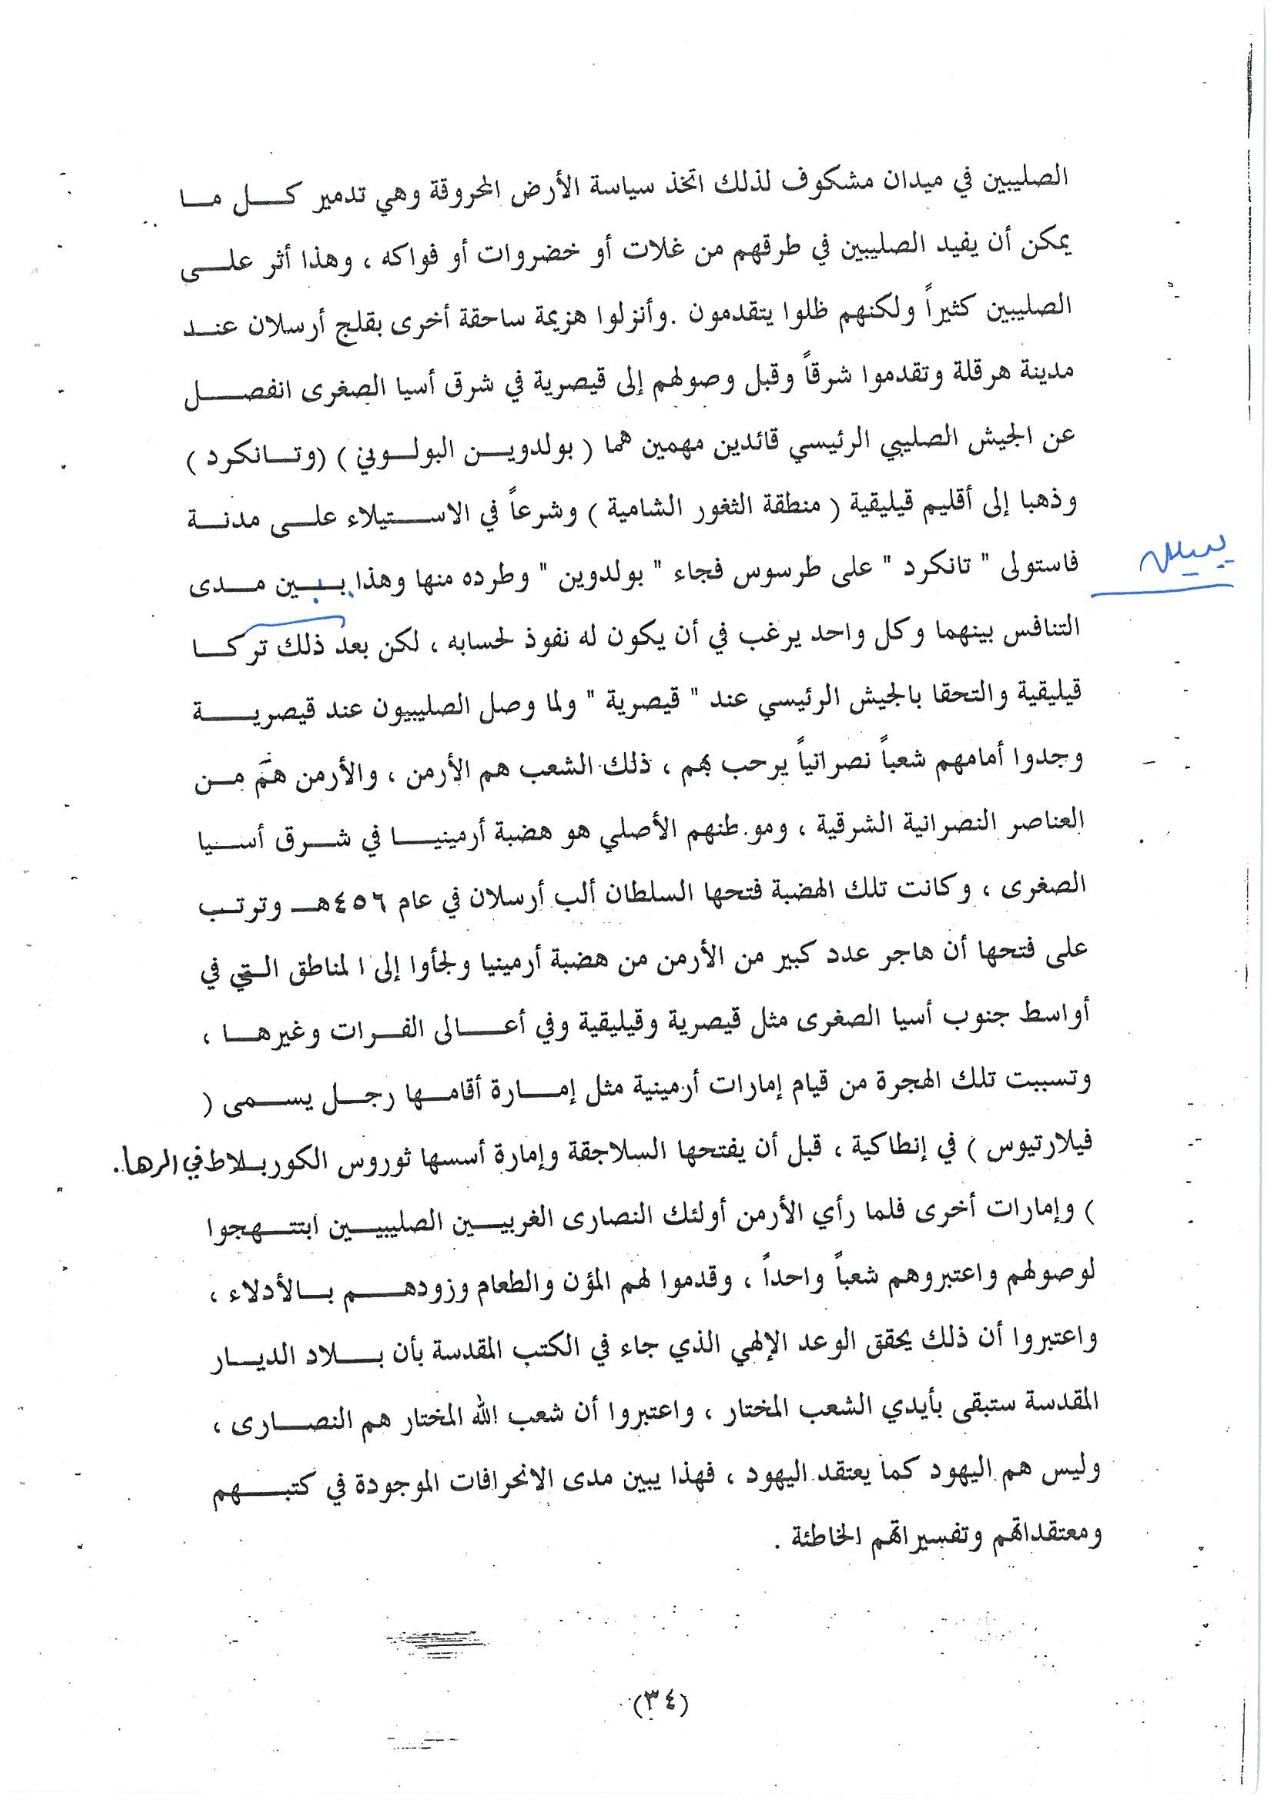 الصليبين في ميدان مشكوف لذلك اتخذ سياسة الأرض المحروقة وهي تدمير كل ما
يمكن أن يفيد الصليبين في طرقهم من غلات أو خضروات أو فواكه ، وهذا أثر على
الصليبين كثيراً ولكنهم ظلوا يتقدمون .وأنزلوا هزيمة ساحقة أخرى بقلج أرسلان عند
مدينة هرقلة وتقدموا شرقاً وقبل وصولهم إلى قيصرية في شرق أسيا الصغرى انفصل
عن الجيش الصليبي الرئيسي قائدين مهمين هما ( بولدوين البولوني ) (وتانكرد )
وذهبا إلى أقليم قيليقية ( منطقة الثغور الشامية ) وشرعاً في الاستيلاء على مدنة
فاستولى " تانكرد " على طرسوس فجاء " بولدوين " وطرده منها وهذا يبين مدى
يبين
التنافس بينهما وكل واحد يرغب في أن يكون له نفوذ لحسابه ، لكن بعد ذلك تركا
قيليقية والتحقا بالجيش الرئيسي عند " قيصرية " ولما وصل الصليبيون عند قيصرية
وجدوا أمامهم شعباً نصرانياً يرحب بهم ، ذلك الشعب هم الأرمن ، والأرمن هم من
العناصر النصرانية الشرقية ، وموطنهم الأصلي هو هضبة أرمينيا في شرق أسيا
الصغرى ، وكانت تلك الهضبة فتحها السلطان ألب أرسلان في عام ٤٥٦هـ وترتب
على فتحها أن هاجر عدد كبير من الأرمن من هضبة أرمينيا ولجأوا إلى المناطق التي في
أواسط جنوب أسيا الصغرى مثل قيصرية وقيليقية وفي أعالى الفرات وغيرها ،
وتسببت تلك الهجرة من قيام إمارات أرمينية مثل إمارة أقامها رجل يسمى (
فيلارتيوس ) في إنطاكية ، قبل أن يفتحها السلاجقة وإمارة أسسها ثوروس الكوربلاط في الرها.
) وإمارات أخرى فلما رأي الأرمن أولئك النصارى الغربيين الصليبيين ابتتهجوا
لوصولهم واعتبروهم شعباً واحداً ، وقدموا لهم المؤن والطعام وزودهم بالأدلاء ،
واعتبروا أن ذلك يحقق الوعد الإلهي الذي جاء في الكتب المقدسة بأن بلاد الديار
المقدسة ستبقى بأيدي الشعب المختار ، واعتبروا أن شعب الله المختار هم النصارى ،
وليس هم اليهود كما يعتقد اليهود ، فهذا يبين مدى الانحرافات الموجودة في كتبهم
ومعتقداتهم وتفسيراتهم الخاطئة .
(٣٤)